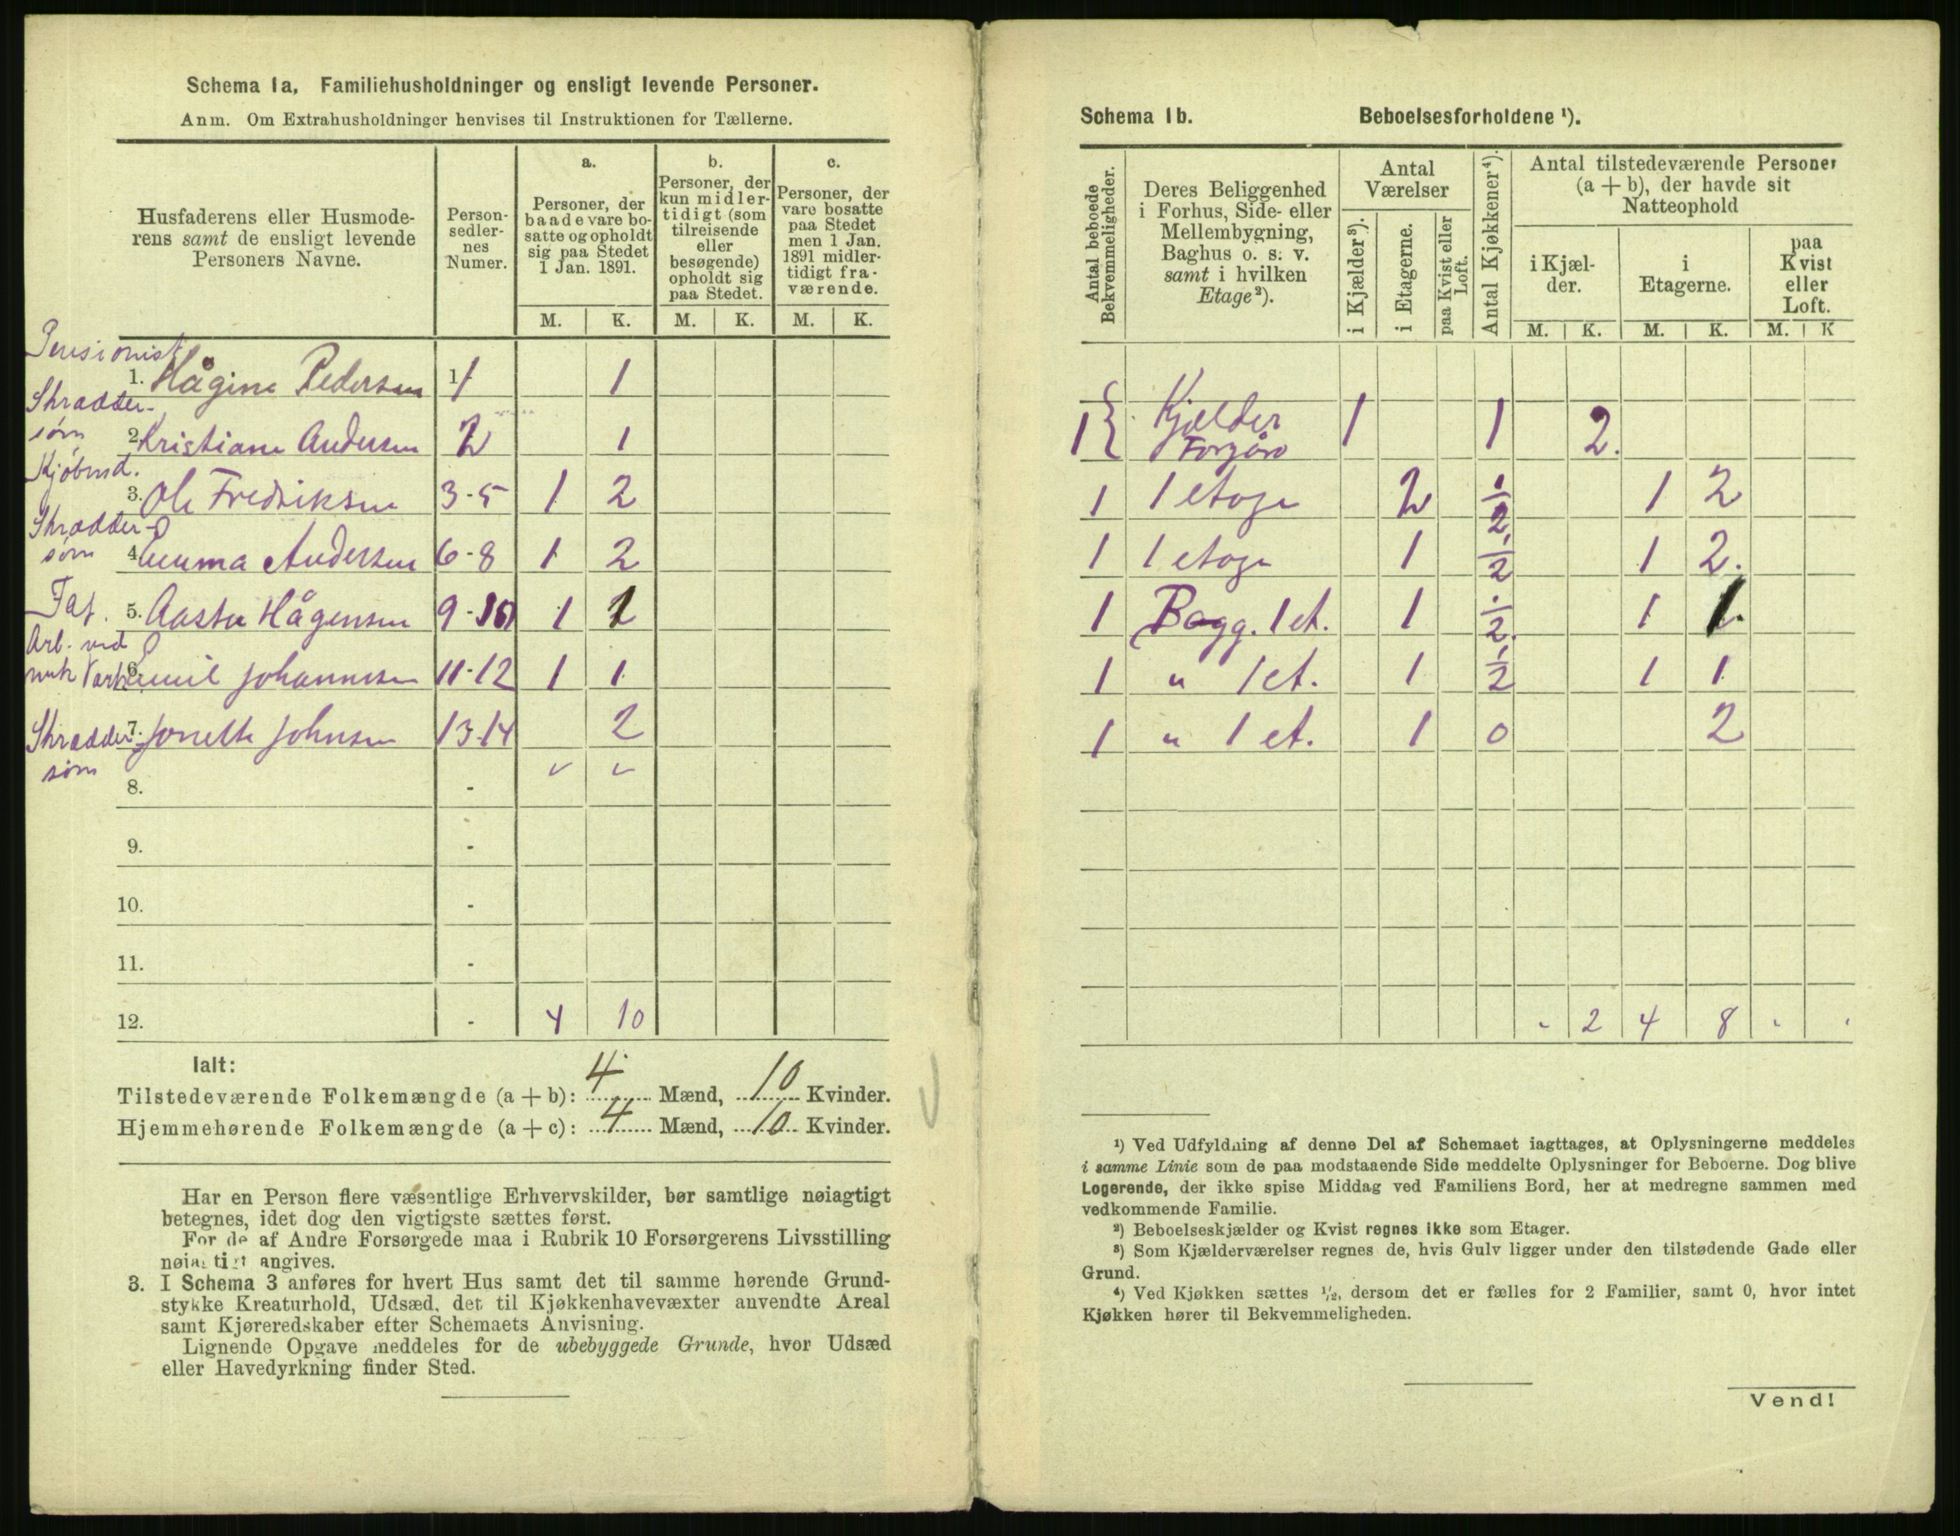 Schema 1a, Familiehusholdninger og ensligt levende Personer.
Anm. Om Extrahusholdninger henvises til Instruktionen for Tællerne.
Husfaderens eller Husmoderens samt de ensligt levende Personers Navne.
Personsedlernes Numer.
a. Personer, der baade vare bosatte og opholdt sig paa Stedet 1 Jan. 1891.
b. Personer, der kun midlertidigt (som tilreisende eller besøgende) opholdt sig paa Stedet.
c. Personer, der vare bosatte paa Stedet men 1 Jan. 1891 midlertidigt fraværende.
M. K. M. K. M. K.
Pensionist
1. Hågine Pedersen 1 1 1
Skrædder-
søm
2. Kristiane Andersen 2 1
Kjøbmd.
3. Ole Fredriksen 3-5 1 2
Skrædder-
søm
4. Emma Andersen 6-8 1 2
Faf.
5. Aasta Hågensen 9-10 1 1
Arb. ved
mek Værk
6. Emil Johannesen 11-12 1 1
Skrædder
søm
7. Jonette Johnsen 13-14 2
8. -
9. -
10. -
11. -
12. - 4 10
Ialt:
Tilstedeværende Folkemængde (a + b): 4 Mænd, 10 Kvinder.
Hjemmehørende Folkemængde (a + c): 4 Mænd, 10 Kvinder.
Har en Person flere væsentlige Erhvervskilder, bør samtlige nøiagtigt
betegnes, idet dog den vigtigste sættes først.
For de af Andre Forsørgede maa i Rubrik 10 Forsørgerens Livsstilling
nøiagtigt angives.
3. I Schema 3 anføres for hvert Hus samt det til samme hørende Grund-
stykke Kreaturhold, Udsæd, det til Kjøkkenhavevæxter anvendte Areal
samt Kjøreredskaber efter Schemaets Anvisning.
Lignende Opgave meddeles for de ubebyggede Grunde, hvor Udsæd
eller Havedyrkning finder Sted.
Schema 1b. Beboelsesforholdene ¹).
Antal beboede Bekvemmeligheder.
Deres Beliggenhed i Forhus, Side- eller Mellembygning, Baghus o. s. v. samt i hvilken Etage ²).
Antal Værelser
i Kjælder ³).
i Etagerne.
paa Kvist eller Loft.
Antal Kjøkkener ⁴).
Antal tilstedeværende Personer (a + b), der havde sit Natteophold
i Kjælder.
i Etagerne.
paa Kvist eller Loft.
M. K. M. K. M. K
1 { Kjælder 1 1 2.
Forgård
1 1 etage 2 1/2 1 2
1 1 etage 1 1/2 1 2.
1 Bagg. 1 et. 1 1/2. 1 1.
1 " 1 et. 1 1/2 1 1
1 " 1 et. 1 0 2
- 2 4 8 - -
¹) Ved Udfyldning af denne Del af Schemaet iagttages, at Oplysningerne meddeles
i samme Linie som de paa modstaaende Side meddelte Oplysninger for Beboerne. Dog blive
Logerende, der ikke spise Middag ved Familiens Bord, her at medregne sammen med
vedkommende Familie.
²) Beboelseskjælder og Kvist regnes ikke som Etager.
³) Som Kjælderværelser regnes de, hvis Gulv ligger under den tilstødende Gade eller
Grund.
⁴) Ved Kjøkken sættes ½, dersom det er fælles for 2 Familier, samt 0, hvor intet
Kjøkken hører til Bekvemmeligheden.
Vend!